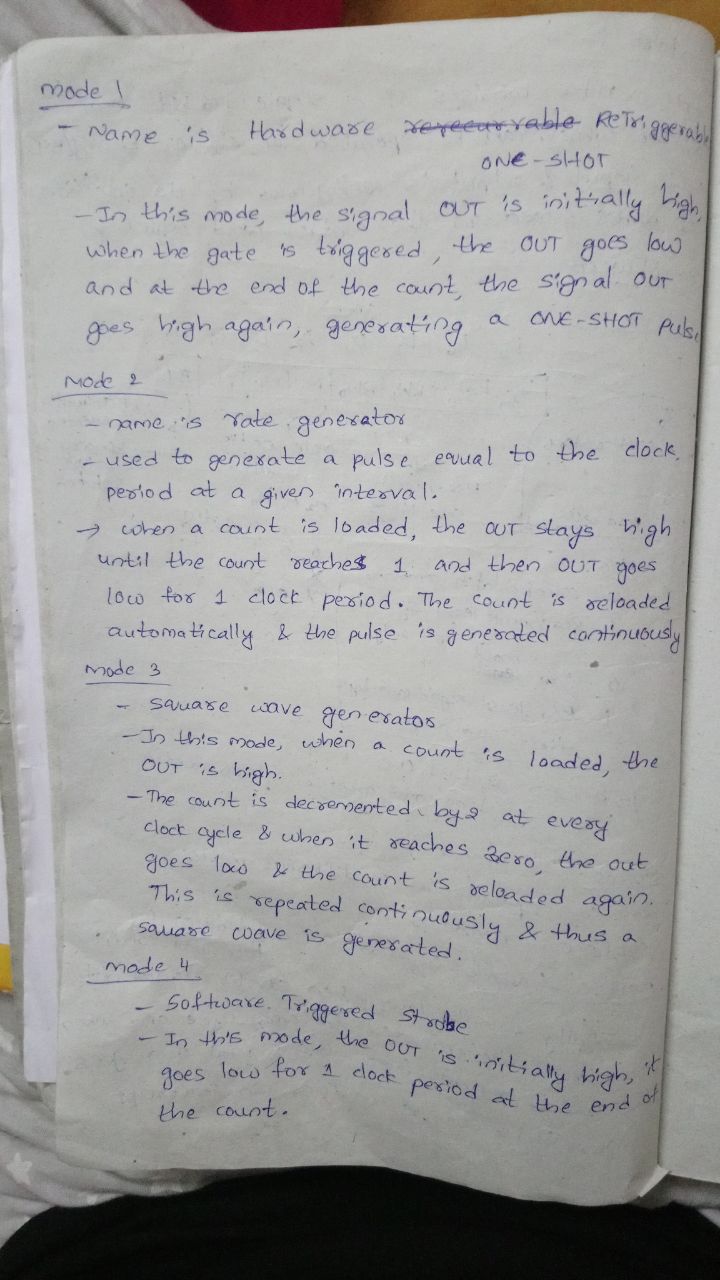 Mode 1
- Name is Hardware ReTriggerabl
ONE-SHOT
- In this mode, the signal OUT is initially high,
when the gate is triggered, the OUT goes low
and at the end of the count, the signal OUT
goes high again, generating a ONE-SHOT puls
Mode 2
- name is rate generator
- used to generate a pulse equal to the clock
period at a given interval.
→ when a count is loaded, the OUT stays high
until the count reaches 1 and then OUT goes
low for 1 clock period. The count is reloaded
automatically & the pulse is generated continuously
Mode 3
- Square wave generator
- In this mode, when a count is loaded, the
OUT is high.
- The count is decremented by 2 at every
clock cycle & when it reaches zero, the out
goes low & the count is reloaded again.
This is repeated continuously & thus a
square wave is generated.
Mode 4
- Software Triggered Strobe
- In this mode, the OUT is initially high, it
goes low for 1 clock period at the end of
the count.